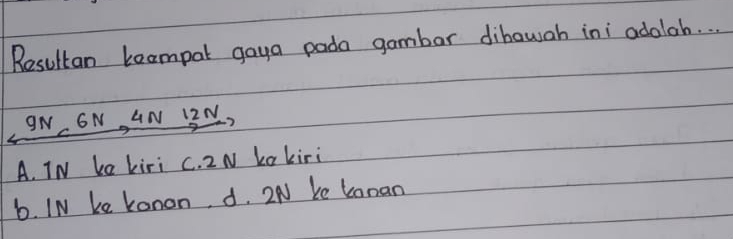 Resultan keempat gaya pada gambar dibawah ini adalah...
9N 6N 4N 12N
A. 1N ke kiri C. 2N ke kiri
b. 1N ke kanan. d. 2N ke kanan